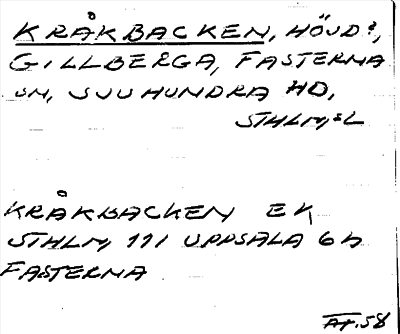 KRÅKBACKEN, HÖJD?,
GILLBERGA, FASTERNA
SN, SJUHUNDRA HD,
STHLMS L
KRÅKBACKEN EK
STHLM 111 UPPSALA 6h
FASTERNA
AF.58